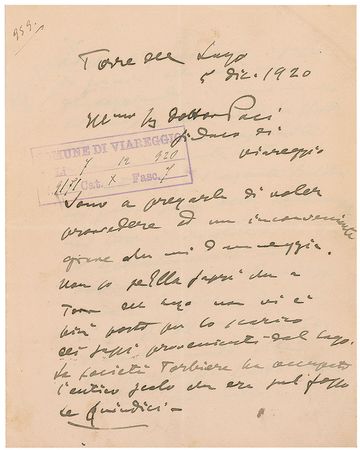 959.
Torre del Lago
5 dic. 1920
Ill.mo Sg dottor Paci
sindaco di
Viareggio
COMUNE DI VIAREGGIO
Li 7 12 920
Cat. X Fasc. 7
Sono a pregarla di voler
provvedere ad un inconveniente
grave che mi danneggia.
Non so se Ella sappia che a
Torre del Lago non vi è
più posto per lo scarico
dei provenienti dal lago.
La società Torbiere ha occupato
l'antico scalo che era sul fosso
le Quindici =